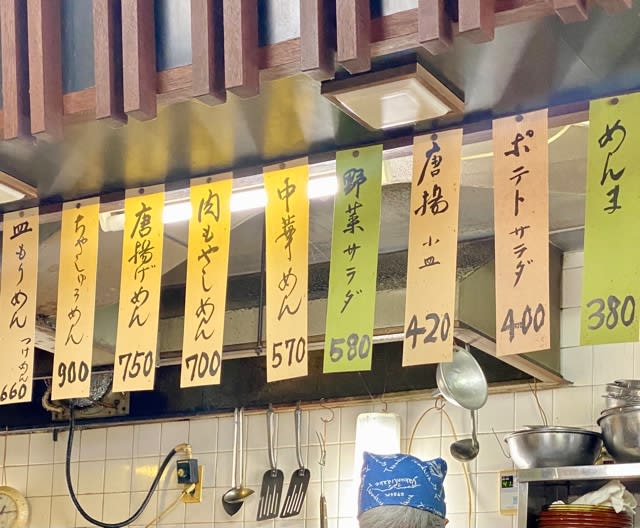 めんま
380
ポテトサラダ
400
唐揚小皿
420
野菜サラダ
580
中華めん
570
肉もやしめん
700
唐揚げめん
750
ちゃーしゅうめん
900
皿もりめん
つけめん
660